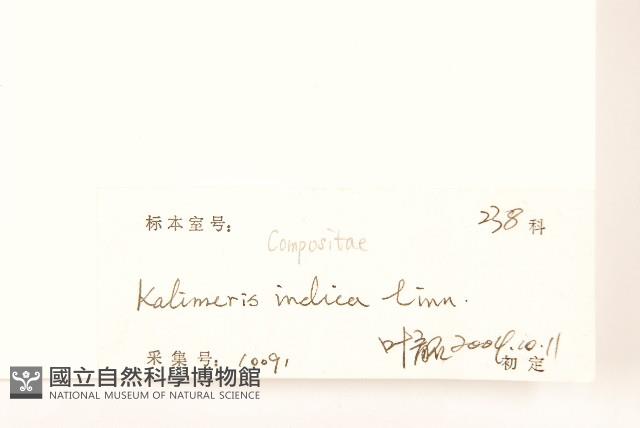 标本室号:
238 科
Compositae
Kalimeris indica Linn.
采集号: 10091
叶 2004.10.11
初定
國立自然科學博物館
NATIONAL MUSEUM OF NATURAL SCIENCE